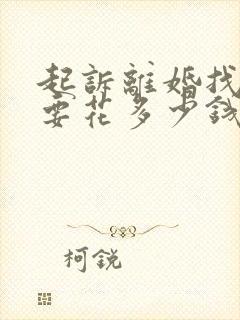 起訴離婚找
要花多少錢
柯銳